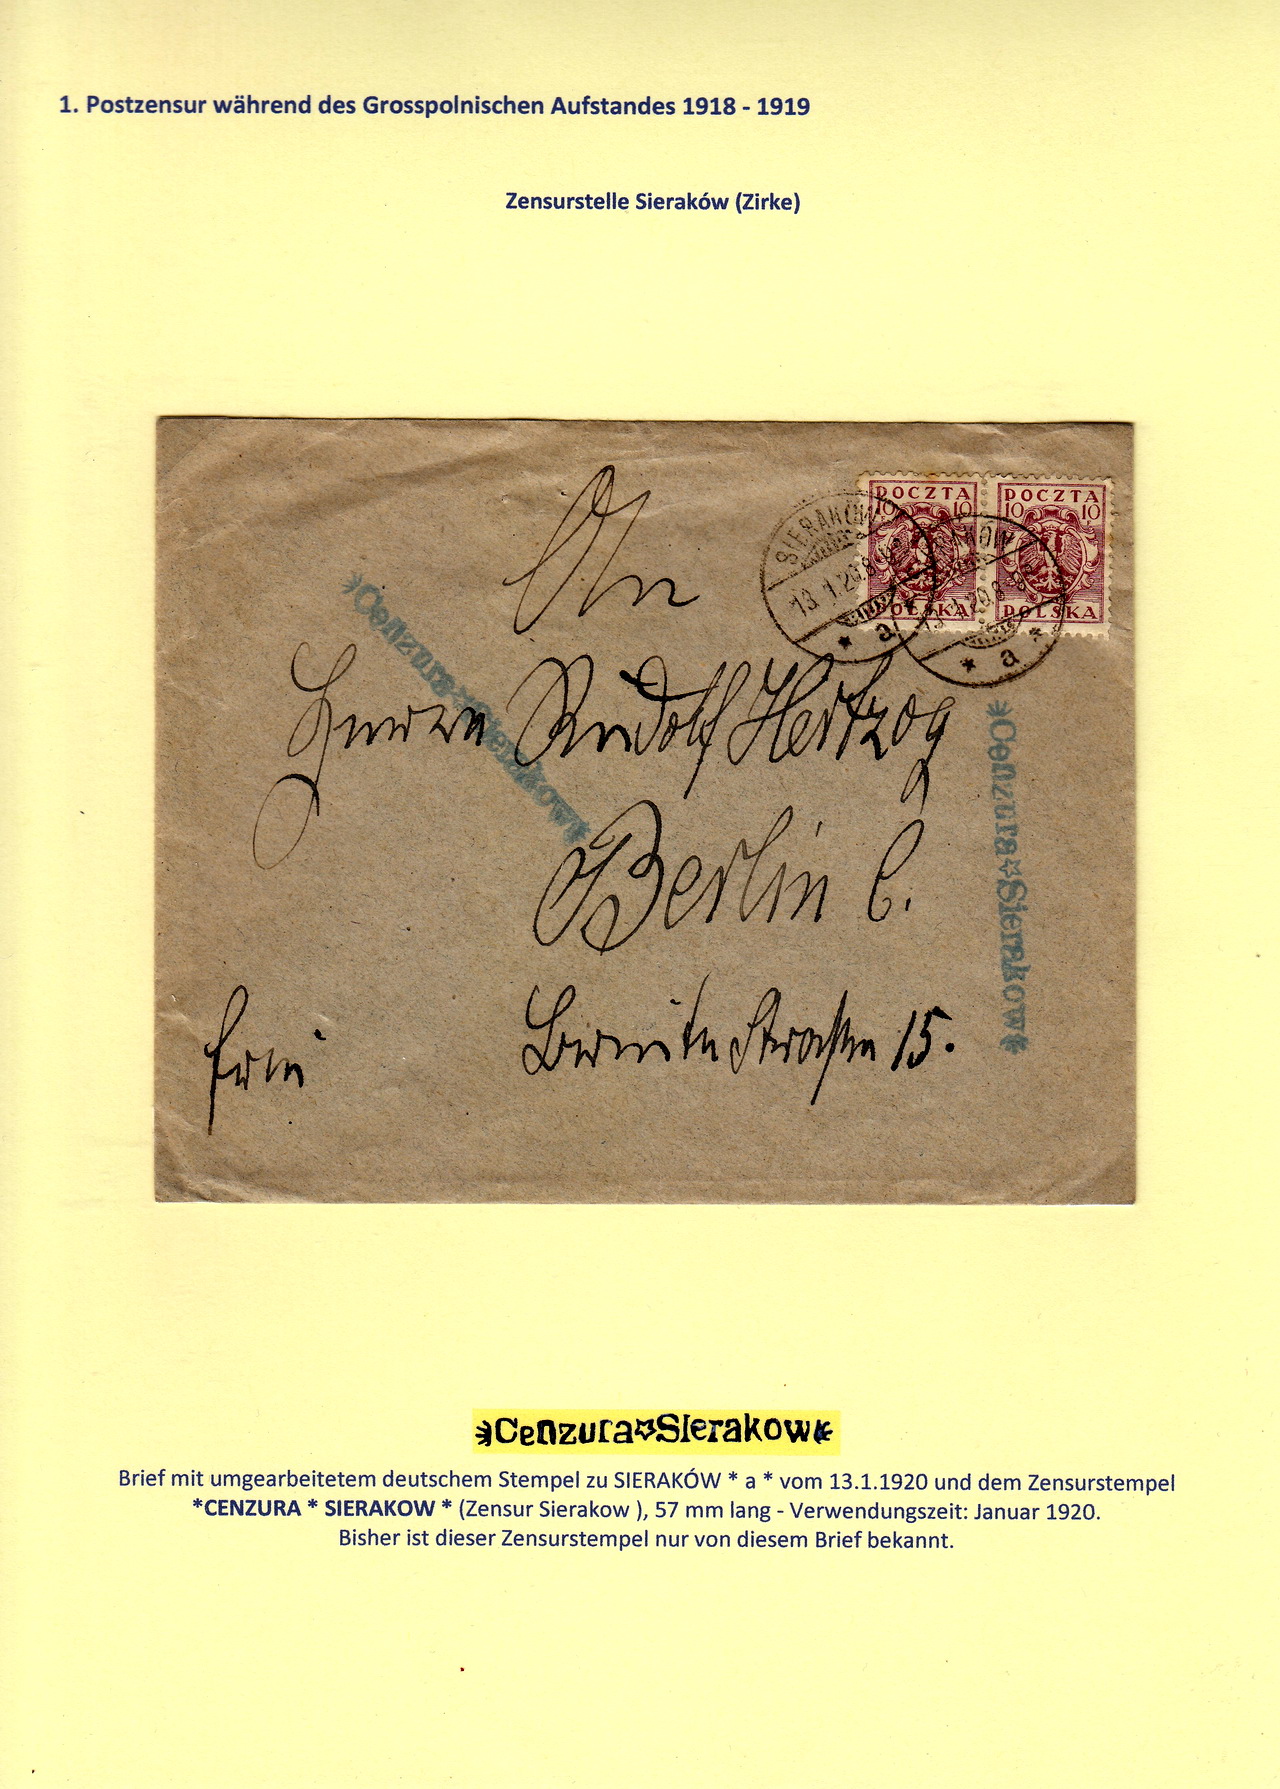 1. Postzensur während des Grosspolnischen Aufstandes 1918 - 1919
Zensurstelle Sieraków (Zirke)
POCZTA
10 10
POLSKA
POCZTA
10 10
POLSKA
SIERAKÓW
13.1.20.8-9
* a *
SIERAKÓW
13.1.20.8-9
* a *
An
Herrn Rudolf Hertzog
Berlin C.
Breite Straße 15.
frei
*Cenzura*Sierakow*
*Cenzura*Sierakow*
*Cenzura*Sierakow*
Brief mit umgearbeitetem deutschem Stempel zu SIERAKÓW * a * vom 13.1.1920 und dem Zensurstempel
*CENZURA * SIERAKOW * (Zensur Sierakow ), 57 mm lang - Verwendungszeit: Januar 1920.
Bisher ist dieser Zensurstempel nur von diesem Brief bekannt.